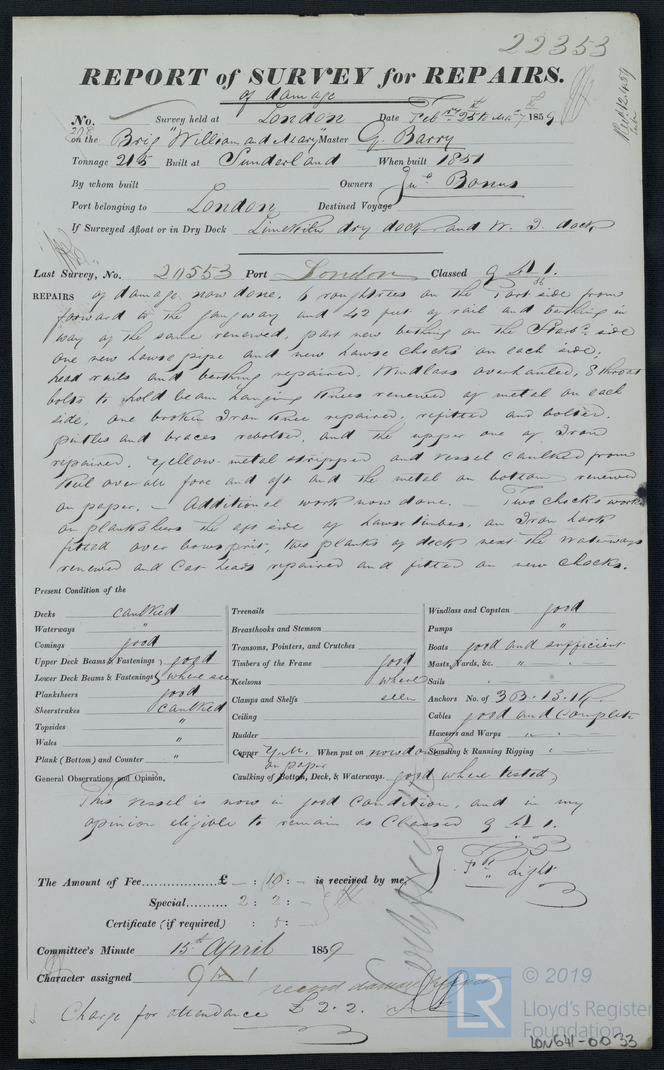 22353
REPORT of SURVEY for REPAIRS.
of damage
No. Survey held at London Date Feb 25th 1859
Rec 12.4.59
208
on the Brig "William and Mary" Master G. Barry
Tonnage 215 Built at Sunderland When built 1851
By whom built Owners Jno Bonus
Port belonging to London Destined Voyage
If Surveyed Afloat or in Dry Dock Limekiln dry dock and W. I. dock
Last Survey, No. 20553 Port London Classed 9 A 1.
REPAIRS of damage now done. 6 roughtrees on the Port side from
forward to the gangway and 42 feet of rail and berthing in
way of the same renewed, part new berthing on the Starbd side
one new hawse pipe and new hawse chocks on each side,
head rails and berthing repaired. Windlass overhauled, 8 throat
bolts to hold beam hanging knees renewed of metal on each
side, one broken Iron knee repaired, refitted and bolted.
pintles and braces rebolted, and the upper one of Iron
repaired. Yellow metal stripped and vessel caulked from
keel over all fore and aft and the metal on bottom renewed
on paper. - Additional work now done. - Two chocks
on planksheers the aft side of hawse timbers, an Iron hook
fitted over bowsprit, two planks of deck next the waterways
renewed and Cat heads repaired and fitted on new chocks.
Present Condition of the
Decks caulked
Waterways "
Comings good
Upper Deck Beams & Fastenings } good
Lower Deck Beams & Fastenings } where seen
Planksheers good
Sheerstrakes caulked
Topsides "
Wales "
Plank (Bottom) and Counter "
Treenails
Breasthooks and Stemson
Transoms, Pointers, and Crutches
Timbers of the Frame good
Keelsons where
Clamps and Shelfs seen
Ceiling
Rudder
Copper Y.M. When put on now done
on paper
Caulking of Bottom, Deck, & Waterways. good where tested
Windlass and Capstan good
Pumps "
Boats good and sufficient
Masts, Yards, &c. "
Sails
Anchors No. of 3 B. 1 S. 1 K.
Cables good and Complete
Hawsers and Warps "
Standing & Running Rigging "
General Observations and Opinion,
This vessel is now in good condition, and in my
opinion eligible to remain as Classed 9 A 1.
Light
The Amount of Fee £ - : 10 : - is received by me,
Special 2 : 2 : -
Certificate (if required) : 5 : -
Committee's Minute 15th April 1859
Character assigned 9 A 1
record damage repaired
Charge for attendance £ 2.2.
LR
© 2019
Lloyd's Register
Foundation
LON641-0033